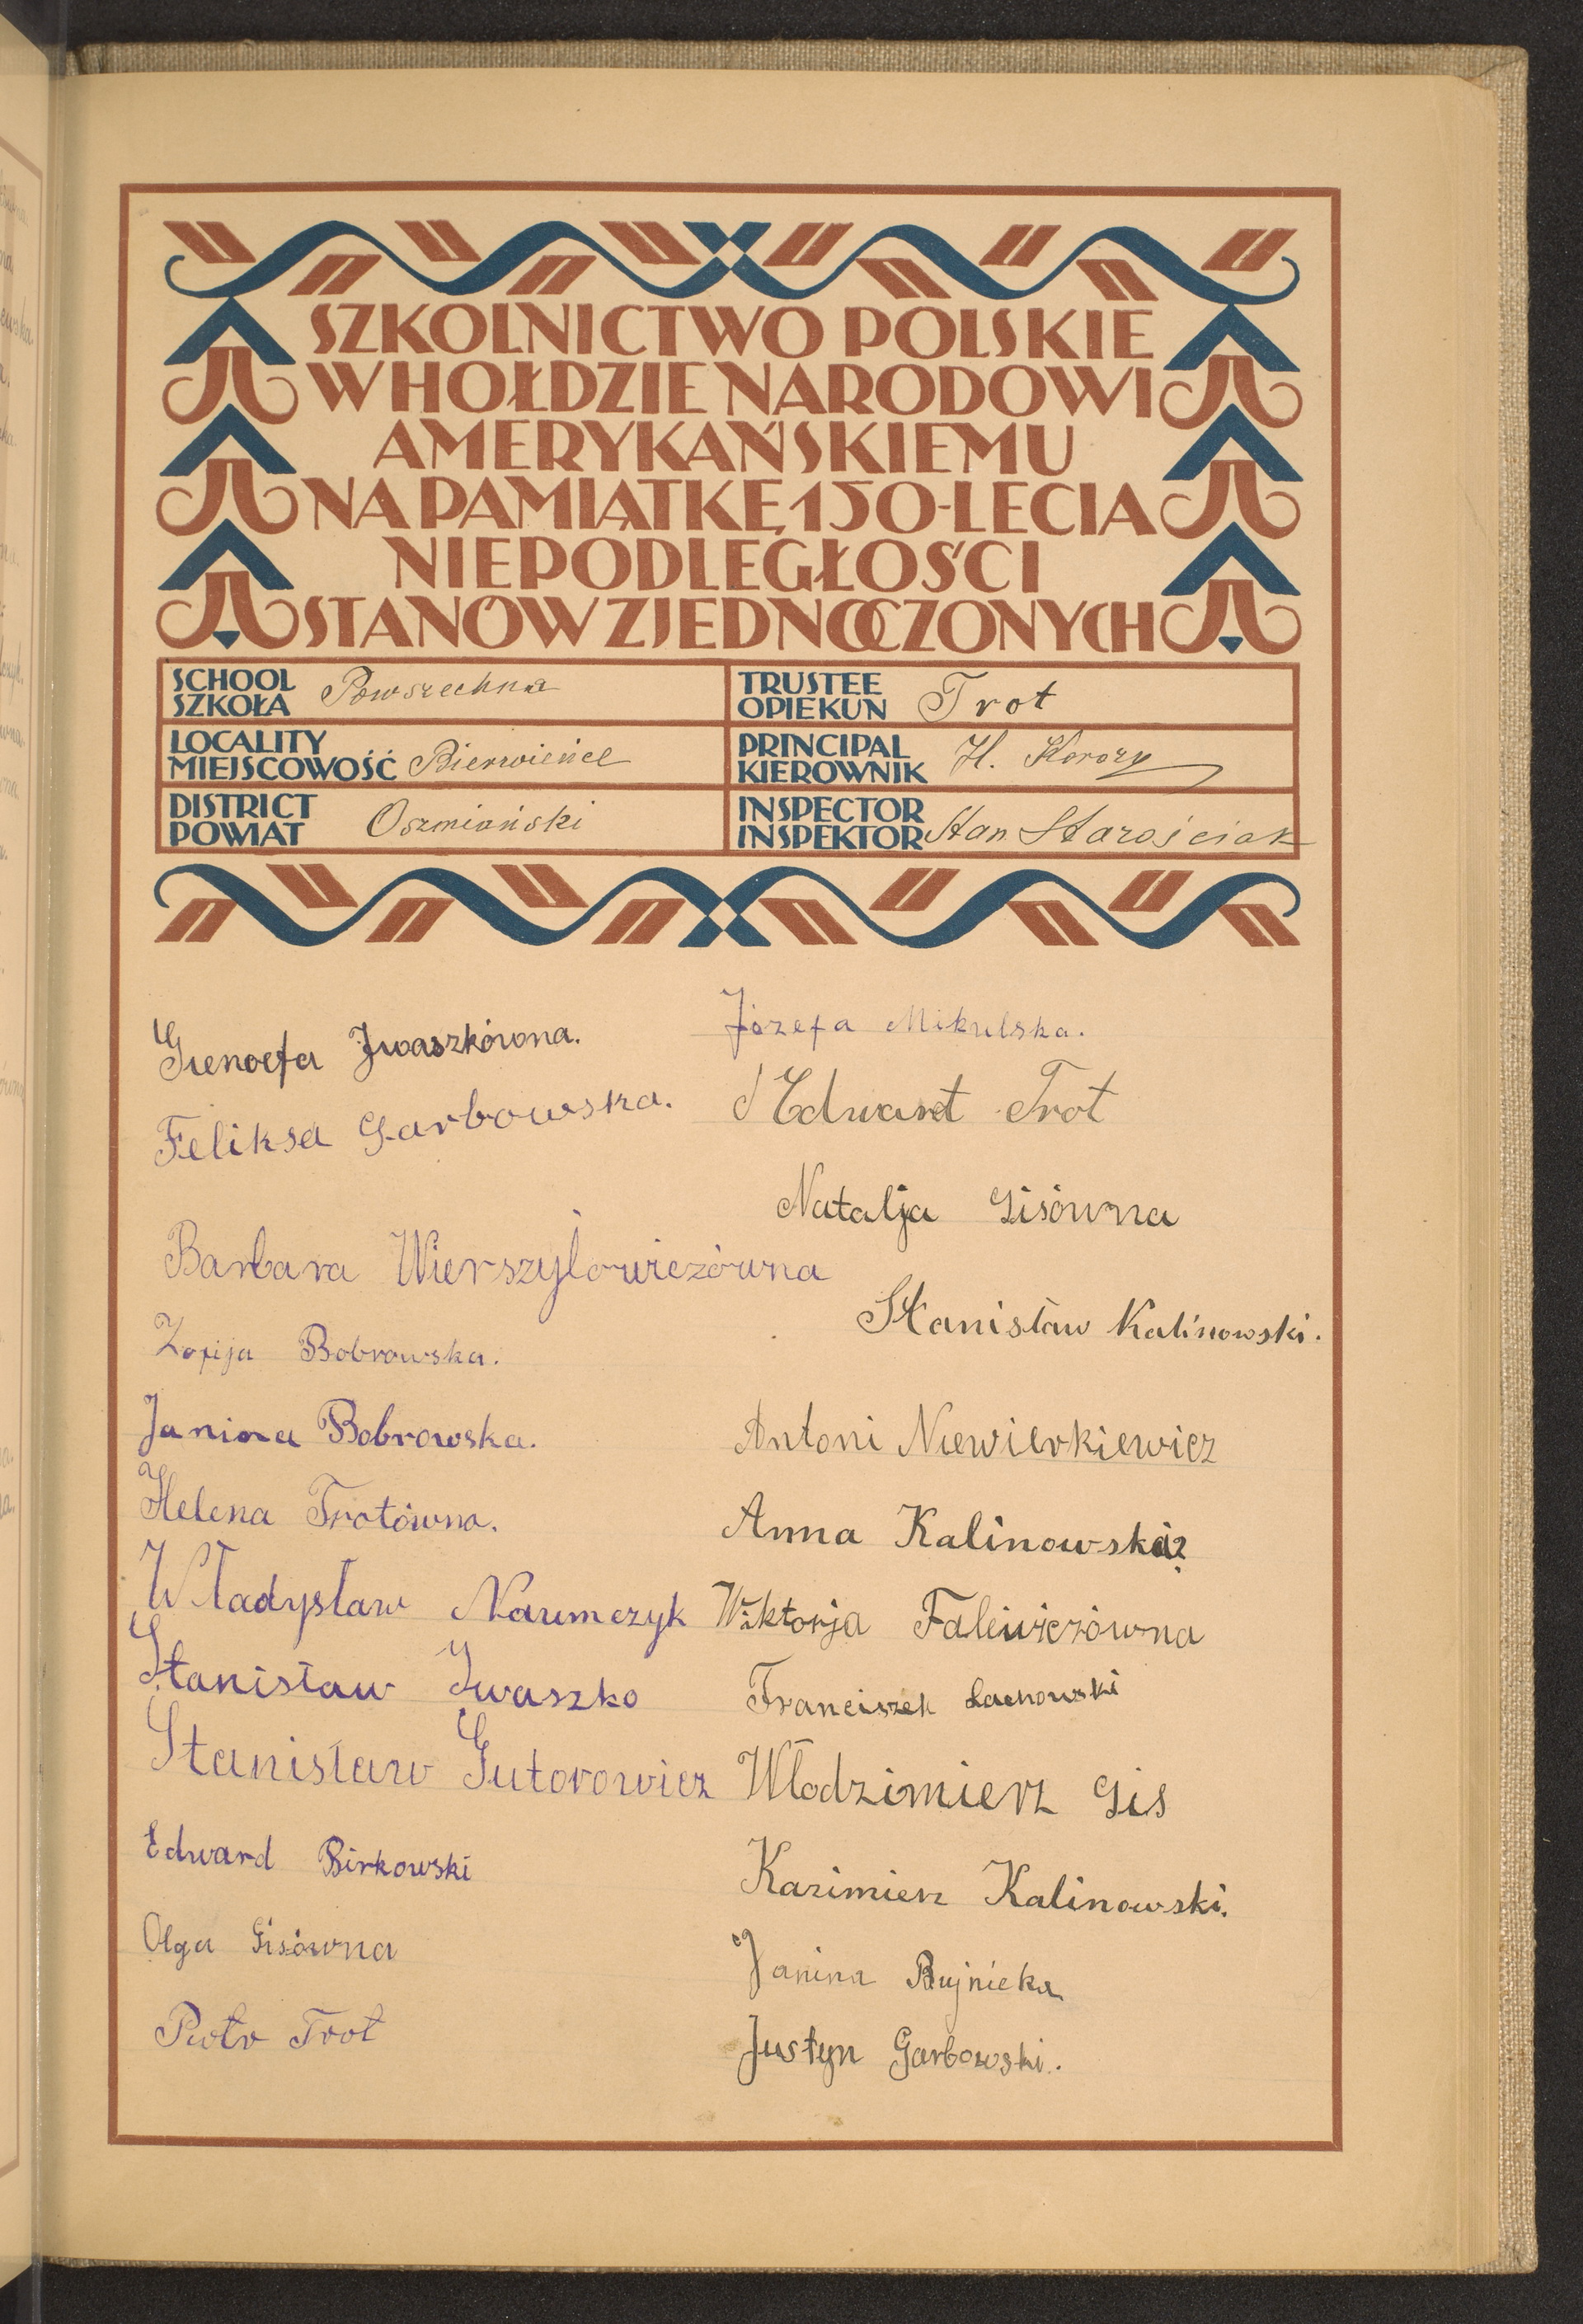 SZKOLNICTWO POLSKIE
W HOŁDZIE NARODOWI
AMERYKAŃSKIEMU
NA PAMIĄTKĘ 150-LECIA
NIEPODLEGŁOŚCI
STANÓW ZJEDNOCZONYCH
SCHOOL
SZKOŁA Powszechna
TRUSTEE
OPIEKUN Trot
LOCALITY
MIEJSCOWOŚĆ Bierwieńce
PRINCIPAL
KIEROWNIK H. Korozy
DISTRICT
POWIAT Oszmiański
INSPECTOR
INSPEKTOR Stan Starościak
Gienoefa Jwaszkówna.
Feliksa Garbowska.
Barbara Wierszyłowiczówna
Zofija Bobrowska.
Janina Bobrowska.
Helena Trotówna.
Władysław Naumczyk
Stanisław Jwaszko
Stanisław Gutorowicz
Edward Birkowski
Olga Gisówna
Piotr Trot
Józefa Mikulska.
Edwart Trot
Natalja Gisówna
Stanisław Kalinowski.
Antoni Niewierkiewicz
Anna Kalinowska
Wiktorja Falewiczówna
Franciszek Lachowski
Włodzimierz Gis
Kazimierz Kalinowski.
Janina Bujnicka
Justyn Garbowski.